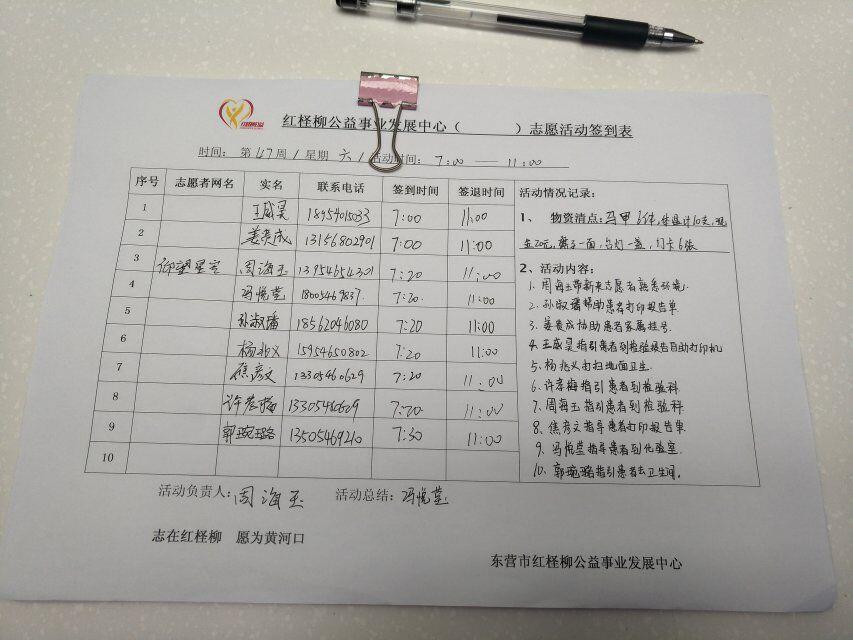 红柽柳公益事业发展中心（ ）志愿活动签到表
时间：第47周/星期六/活动时间：7:00 — 11:00
序号 志愿者网名 实名 联系电话 签到时间 签退时间
1 王威昊 18954015033 7:00 11:00
2 姜贵成 13156802901 7:00 11:00
3 仰望星空 周海玉 13954654301 7:20 11:00
4 冯悦莹 18005469837 7:20 11:00
5 孙淑潘 18562046080 7:20 11:00
6 杨兆义 15954650802 7:20 11:00
7 焦彦文 13305460629 7:20 11:00
8 许孝梅 13305460609 7:20 11:00
9 郭琬璐 13505469210 7:30 11:00
10
活动情况记录：
1、 物资清点：马甲6件，体温计10支，现
金20元，旗子一面，台灯一盏，门卡6张
2、活动内容：
1、周海玉带新来志愿者熟悉环境
2、孙淑潘帮助患者打印报告单
3、姜贵成协助患者家属挂号
4、王威昊指引患者到检验报告自助打印机
5、杨兆义打扫地面卫生
6、许孝梅指引患者到检验科
7、周海玉指引患者到检验科
8、焦彦文指导患者打印报告单
9、冯悦莹指导患者到化验室
10、郭琬璐指引患者去卫生间。
活动负责人：周海玉 活动总结：冯悦莹
志在红柽柳 愿为黄河口
东营市红柽柳公益事业发展中心